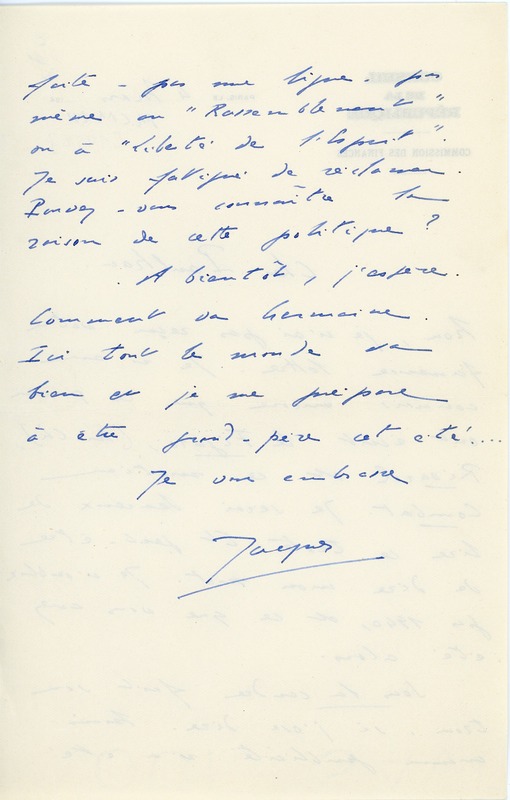 faite - pas une ligne. pas
même au "Rassemblement"
ou à "Liberté de l'Esprit".
Je suis fatigué de réclamer.
Pouvez-vous connaître la
raison de cette politique ?
A bientôt, j'espère.
Comment va Germaine.
Ici tout le monde va
bien et je me prépare
à être grand-père cet été....
Je vous embrasse
Jacques